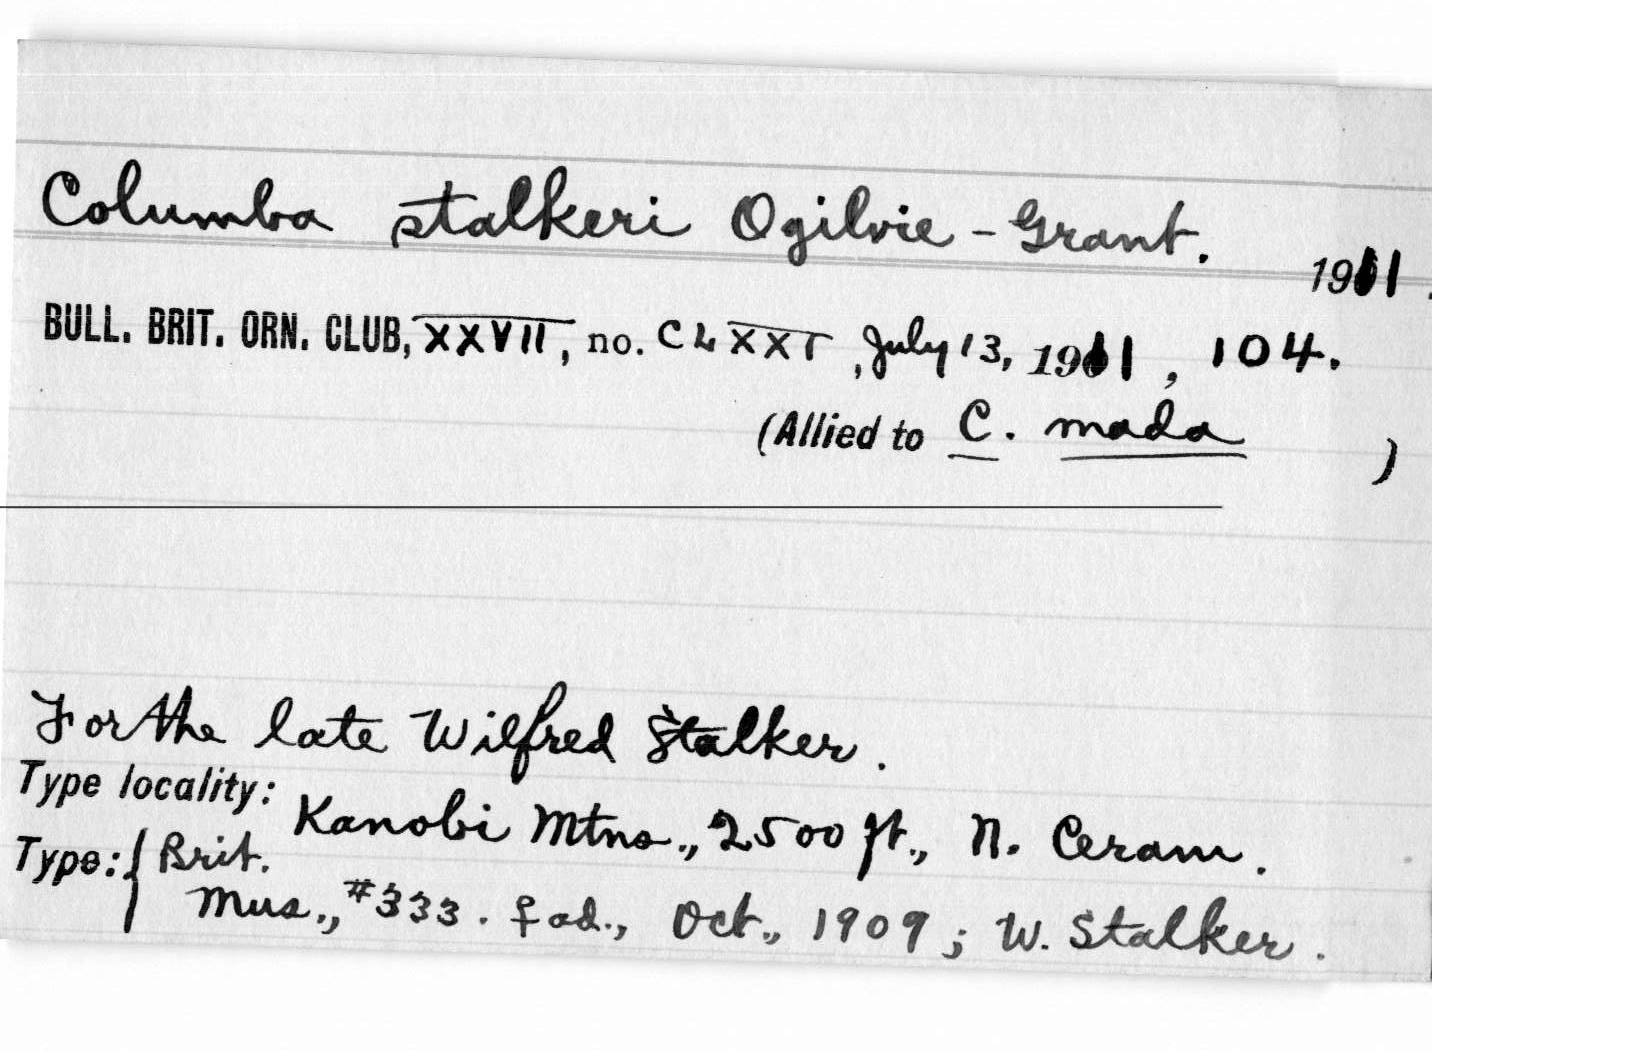 Columba stalkeri Ogilvie-Grant.
1911.
BULL. BRIT. ORN. CLUB, XXVII, no. CLXXI, July 13, 1911, 104.
(Allied to C. mada )
For the late Wilfred Stalker.
Type locality: Kanobi Mtns., 2500 ft., N. Ceram.
Type: { Brit.
Mus., #333. ♀ ad., Oct., 1909; W. Stalker.